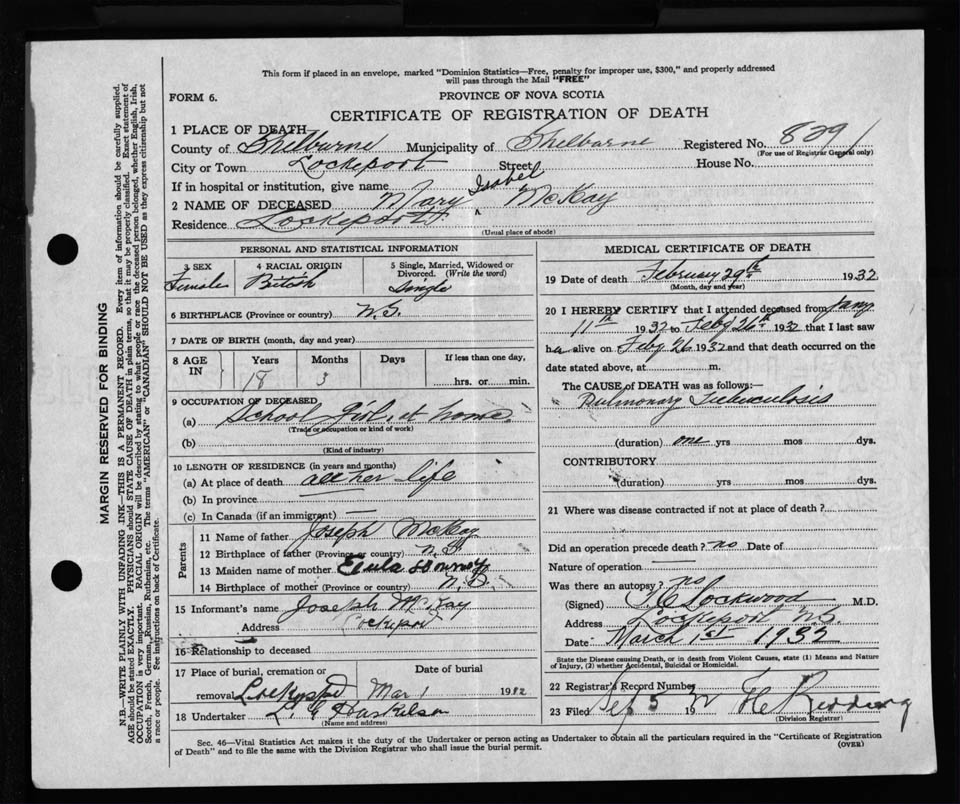 This form if placed in an envelope, marked "Dominion Statistics—Free, penalty for improper use, $300," and properly addressed
will pass through the Mail "FREE"
FORM 6.
PROVINCE OF NOVA SCOTIA
CERTIFICATE OF REGISTRATION OF DEATH
1 PLACE OF DEATH
County of Shelburne Municipality of Shelburne Registered No. 829
(For use of Registrar General only)
City or Town Lockeport Street House No.
If in hospital or institution, give name
2 NAME OF DECEASED Mary Isabel McKay
Residence Lockeport
(Usual place of abode)
PERSONAL AND STATISTICAL INFORMATION
3 SEX 4 RACIAL ORIGIN 5 Single, Married, Widowed or
Divorced. (Write the word)
Female British Single
6 BIRTHPLACE (Province or country) N.S.
7 DATE OF BIRTH (month, day and year)
8 AGE Years Months Days If less than one day,
IN 18 3 hrs. or min.
9 OCCUPATION OF DECEASED
(a) School girl at home
(Trade or occupation or kind of work)
(b)
(Kind of industry)
10 LENGTH OF RESIDENCE (in years and months)
(a) At place of death all her life
(b) In province
(c) In Canada (if an immigrant) —
Parents
11 Name of father Joseph McKay
12 Birthplace of father (Province or country) N.S.
13 Maiden name of mother
14 Birthplace of mother (Province or country) N.S.
15 Informant's name Joseph McKay
Address Lockeport
16 Relationship to deceased
17 Place of burial, cremation or Date of burial
removal Lockeport Mar 1 1932
18 Undertaker
(Name and address)
MEDICAL CERTIFICATE OF DEATH
19 Date of death February 29th 1932
(Month, day and year)
20 I HEREBY CERTIFY that I attended deceased from Jany
11th 1932 to Feby 26th 1932 that I last saw
her alive on Feby 26 1932 and that death occurred on the
date stated above, at m.
The CAUSE OF DEATH was as follows:—
Pulmonary Tuberculosis
(duration) one yrs mos dys.
CONTRIBUTORY
(duration) yrs mos dys.
21 Where was disease contracted if not at place of death?
Did an operation precede death? no Date of
Nature of operation —
Was there an autopsy? no
(Signed) Lockwood M.D.
Address Lockeport N.S.
Date March 1st 1932
State the Disease causing Death, or in death from Violent Causes, state (1) Means and Nature
of Injury, (2) whether Accidental, Suicidal or Homicidal.
22 Registrar's Record Number
23 Filed 19
(Division Registrar)
Sec. 46—Vital Statistics Act makes it the duty of the Undertaker or person acting as Undertaker to obtain all the particulars required in the "Certificate of Registration
of Death" and to file the same with the Division Registrar who shall issue the burial permit.
(OVER)
MARGIN RESERVED FOR BINDING
N.B.—WRITE PLAINLY WITH UNFADING INK—THIS IS A PERMANENT RECORD. Every item of information should be carefully supplied.
AGE should be stated EXACTLY. PHYSICIANS should STATE CAUSE OF DEATH in plain terms, so that it may be properly classified. Exact statement of
OCCUPATION is very important. RACIAL ORIGIN will be described by stating to what people or race the deceased person belonged, whether English, Irish,
Scotch, French, German, Russian, Ruthenian, etc. The terms "AMERICAN" or "CANADIAN" SHOULD NOT BE USED as they express citizenship but not
a race or people. See instructions on back of Certificate.